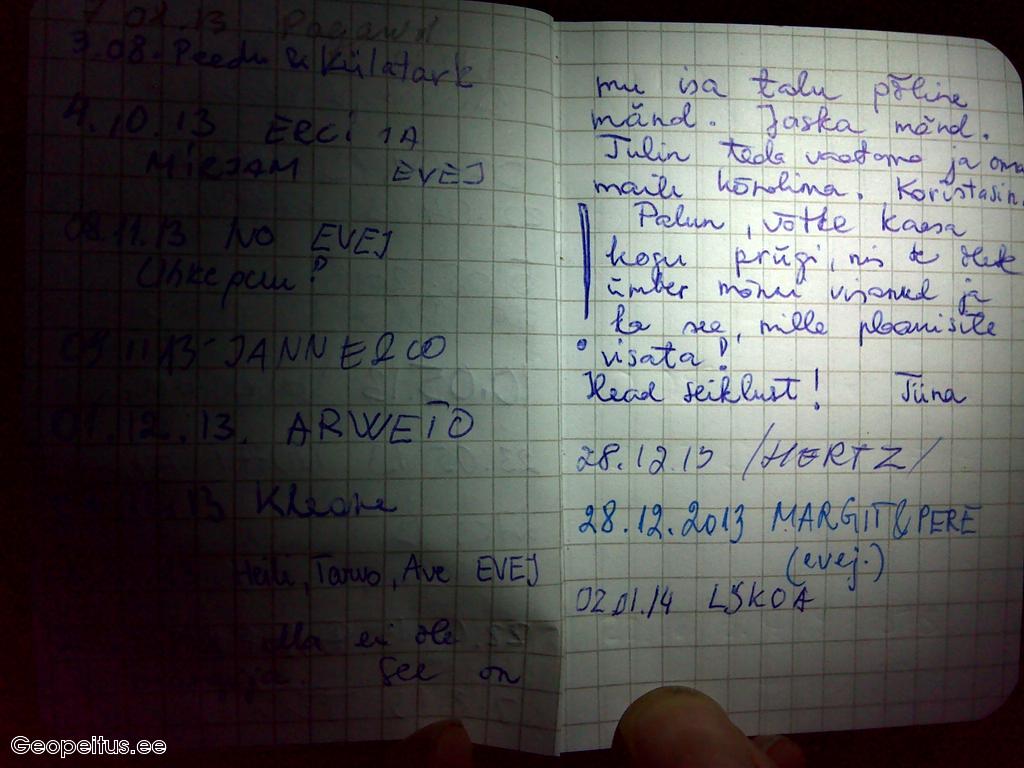 7.01.13
3.08. Peedu & Külatark
4.10.13 ERCI 1A
MIRJAM EVEJ
08.11.13 NO EVEJ
09.11.13 JANNERCO
01.12.13. ARWETO
13 Kleone
Heili, Tarvo, Ave EVEJ
Ma ei ole
See on
mu isa talu põline
mänd. Jaska mänd.
Tulin teda vaatama ja oma
maile kõndima. Koristasin.
Palun, võtke kaasa
kogu prügi, mis te olete
ümber männi visanud ja
ka see, mille plaanisite
visata!
Head seiklust! Tiina
28.12.13 /HERTZ/
28.12.2013 MARGIT & PERE
(evej.)
02.01.14 LSKOA
Geopeitus.ee